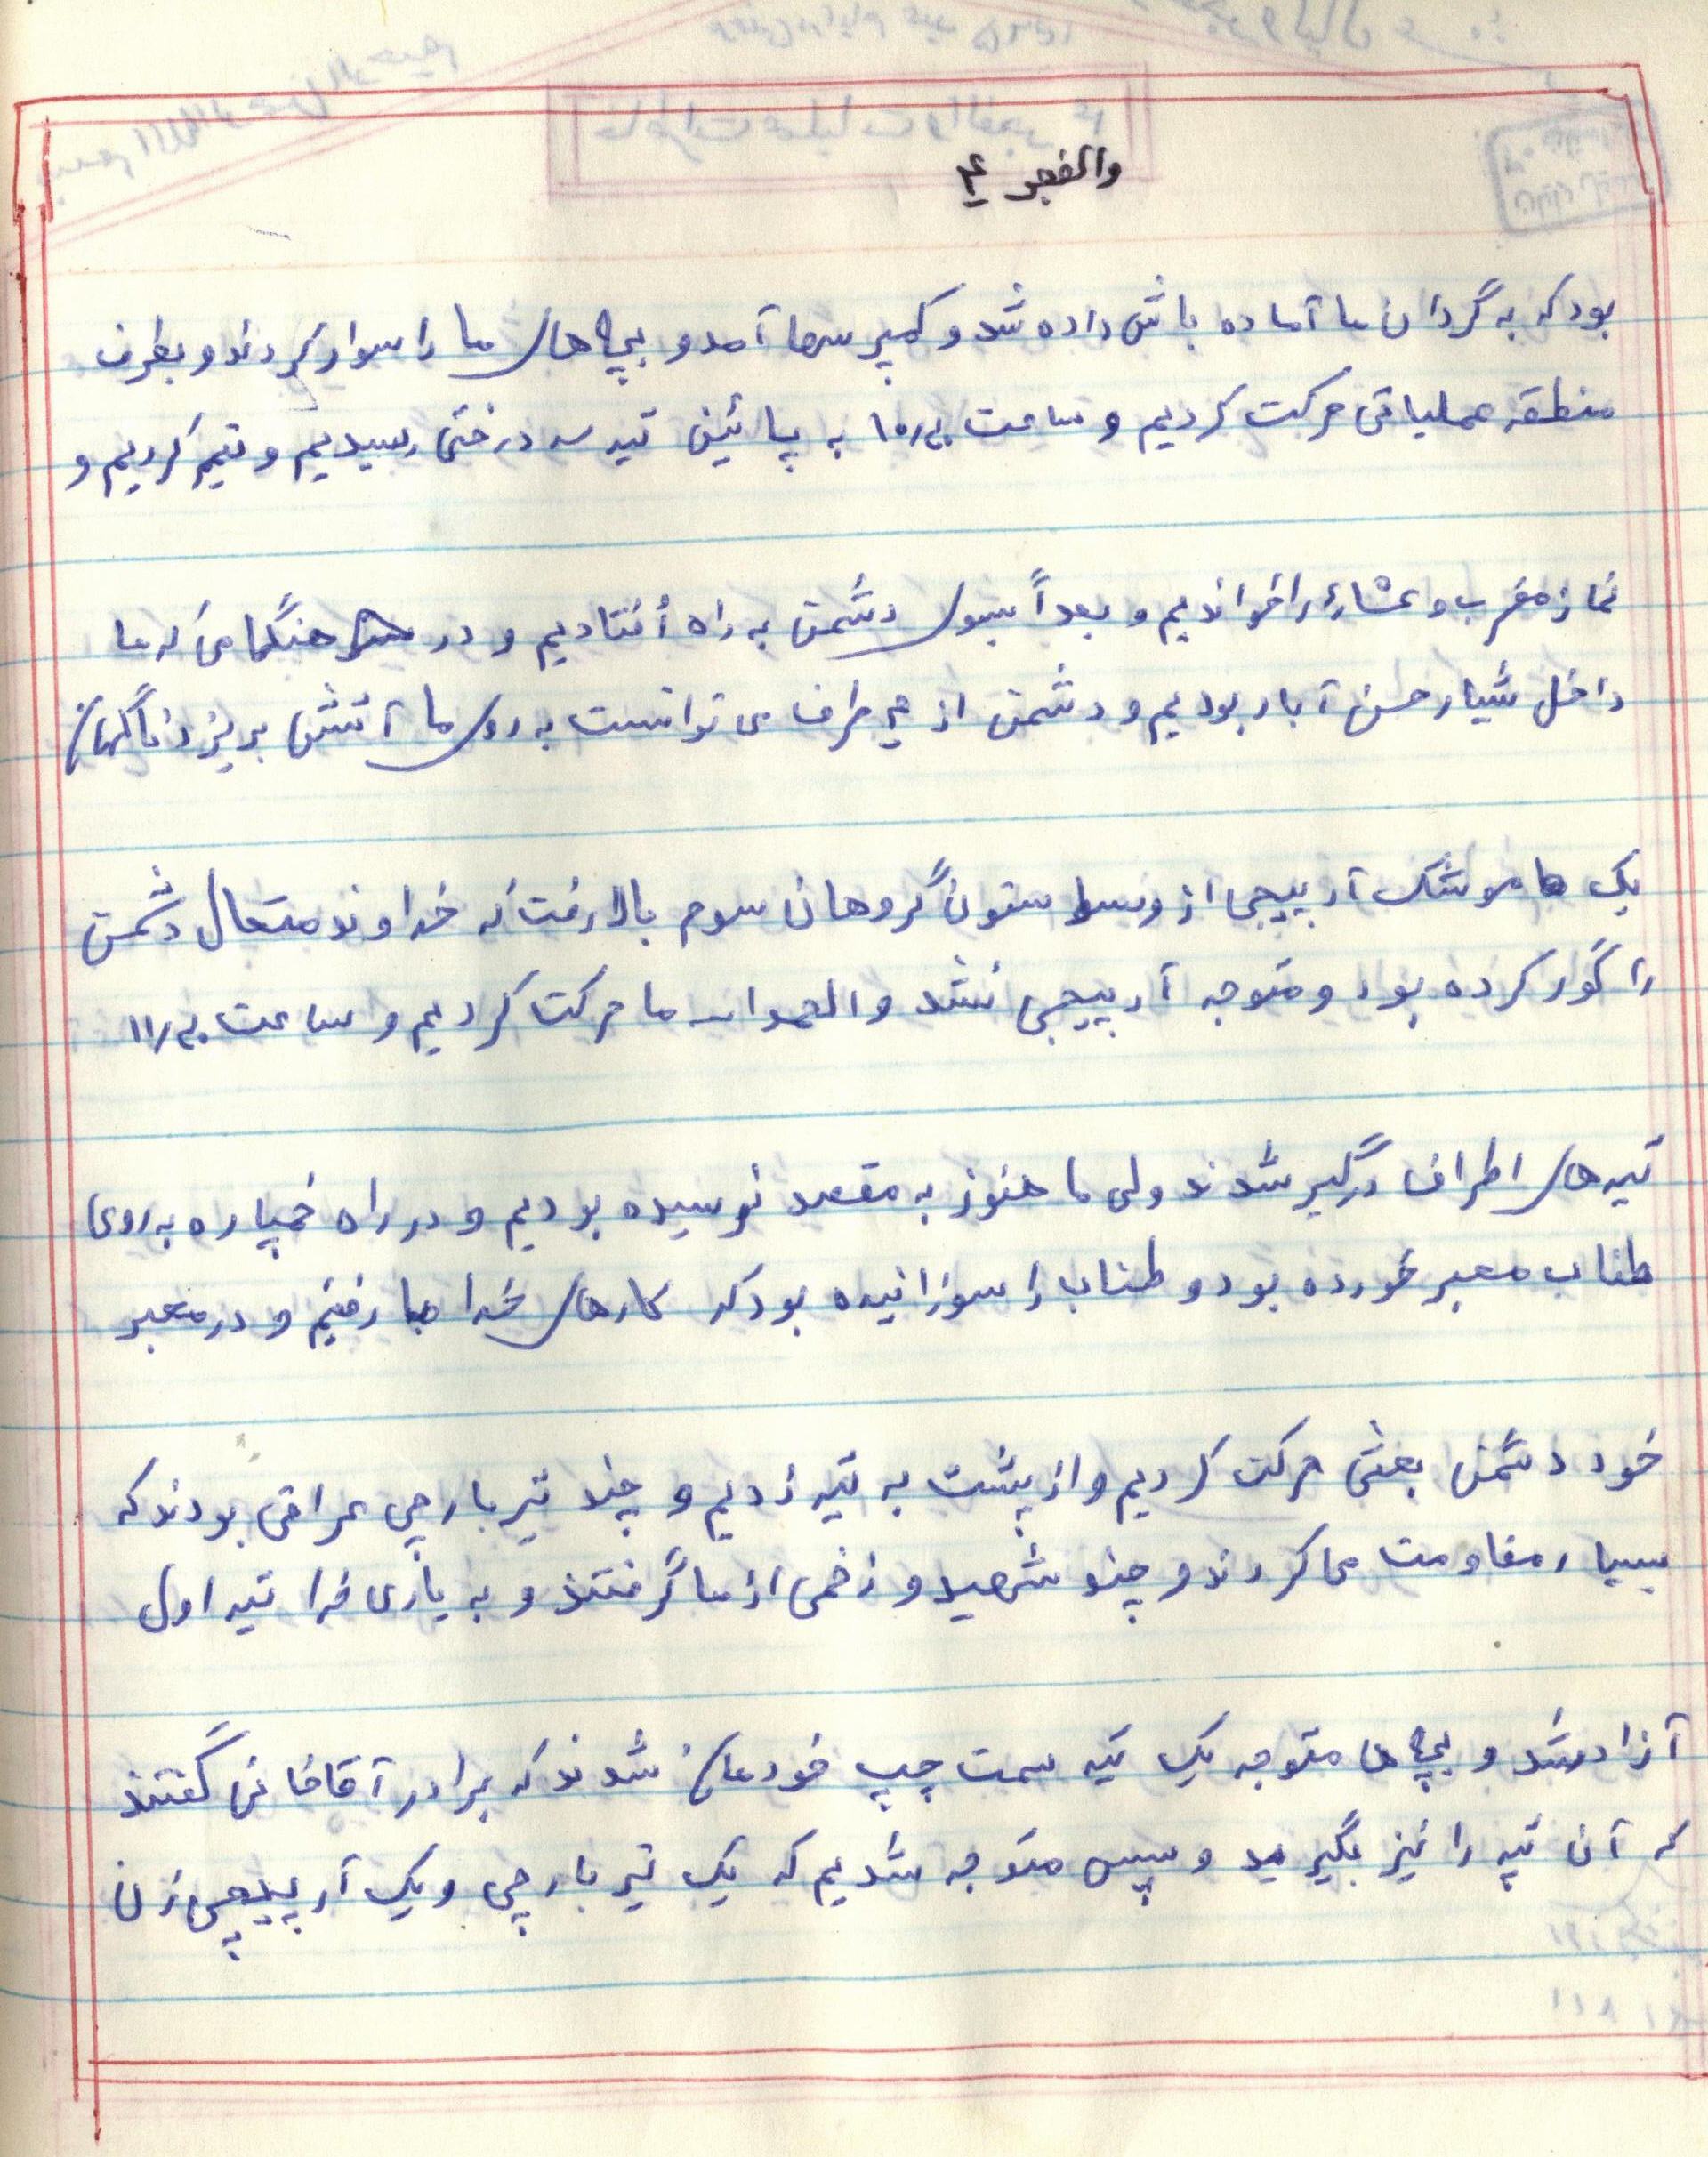 والفجر ۴
بود که به گردان ما آماده باش داده شد و کمپرسها آمد و بچه های ما را سوار کردند و بطرف
منطقه عملیاتی حرکت کردیم و ساعت به پائین تپه سه درختی رسیدیم و تیمم کردیم و
نماز مغرب و عشاء را خواندیم و بعداً بسوی دشمن به راه اُفتادیم و در هنگامی که ما
داخل شیار حسن آباد بودیم و دشمن از هر طرف می توانست به روی ما آتش بریزد ناگهان
یک موشک آرپیجی از وسط ستون گروهان سوم بالا رفت که خداوند متعال دشمن
را کور کرده بود و متوجه آرپیجی نشد و الحمدالله ما حرکت کردیم و ساعت
تپه های اطراف درگیر شدند ولی ما هنوز به مقصد نرسیده بودیم و در راه خمپاره به روی
طناب معبر خورده بود و طناب را سوزانیده بود که کارهای خدا ما رفتیم و در معبر
خود دشمن بعثی حرکت کردیم و از پشت به تپه زدیم و چند تیربارچی عراقی بودند که
بسیار مقاومت می کردند و چند شهید و زخمی از ما گرفتند و به یاری خدا تپه اول
آزاد شد و بچه ها متوجه یک تپه سمت چپ خودمان شدند که برادر آقاخانی گفتند
که آن تپه را نیز بگیرید و سپس متوجه شدیم که یک تیربارچی و یک آرپیجی زن